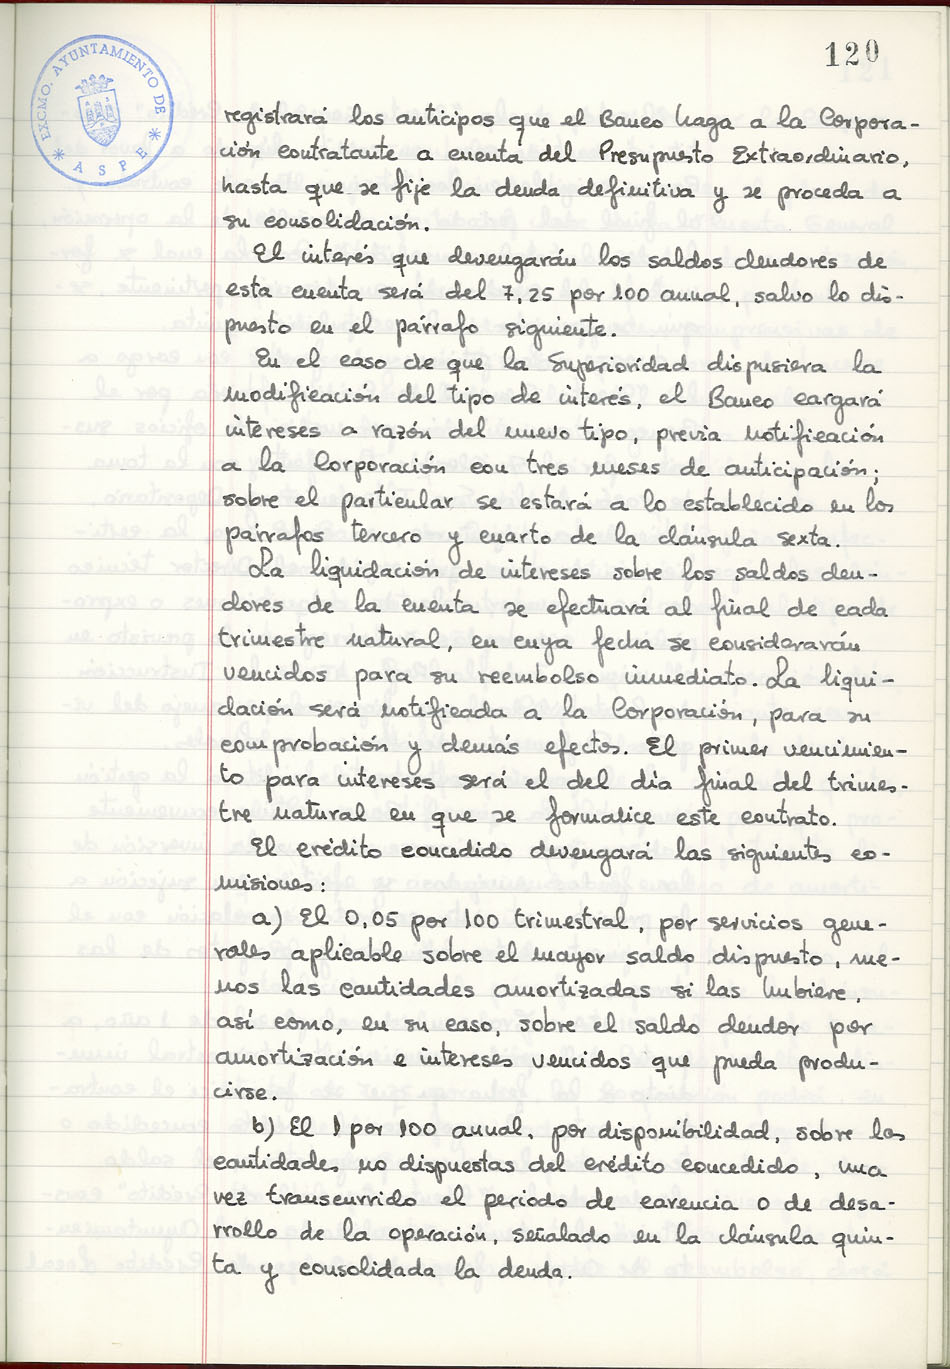 120
EXCMO. AYUNTAMIENTO DE
* ASPE *
registrará los anticipos que el Banco haga a la Corpora-
ción contratante a cuenta del Presupuesto Extraordinario,
hasta que se fije la deuda definitiva y se proceda a
su consolidación.
El interés que devengarán los saldos deudores de
esta cuenta será del 7,25 por 100 anual, salvo lo dis-
puesto en el párrafo siguiente.
En el caso de que la Superioridad dispusiera la
modificación del tipo de interés, el Banco cargará
intereses a razón del nuevo tipo, previa notificación
a la Corporación con tres meses de anticipación;
sobre el particular se estará a lo establecido en los
párrafos tercero y cuarto de la cláusula sexta.
La liquidación de intereses sobre los saldos deu-
dores de la cuenta se efectuará al final de cada
trimestre natural, en cuya fecha se considerarán
vencidos para su reembolso inmediato. La liqui-
dación será notificada a la Corporación, para su
comprobación y demás efectos. El primer vencimien-
to para intereses será el del día final del trimes-
tre natural en que se formalice este contrato.
El crédito concedido devengará las siguientes co-
misiones:
a) El 0,05 por 100 trimestral, por servicios gene-
rales aplicable sobre el mayor saldo dispuesto, me-
nos las cantidades amortizadas si las hubiere,
así como, en su caso, sobre el saldo deudor por
amortización e intereses vencidos que pueda produ-
cirse.
b) El 1 por 100 anual, por disponibilidad, sobre las
cantidades no dispuestas del crédito concedido, una
vez transcurrido el período de carencia o de desa-
rrollo de la operación, señalado en la cláusula quin-
ta y consolidada la deuda.